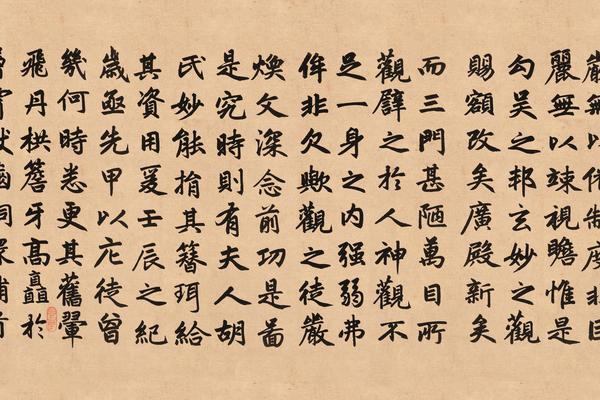 嚴無以侈制度
麗無以竦視瞻惟是
勾吳之邦玄妙之觀
賜額改矣廣殿新矣
而三門甚陋萬目所
觀辟之於人神觀不
足一身之内强弱弗
侔非欠歟觀之徒嚴
煥文深念前功是啚
是究時則有夫人胡
氏妙能捐其簪珥給
其資用爰壬辰之紀
歲亟先甲以庀徒曾
幾何時悉更其舊翬
飛丹栱簷牙高矗於